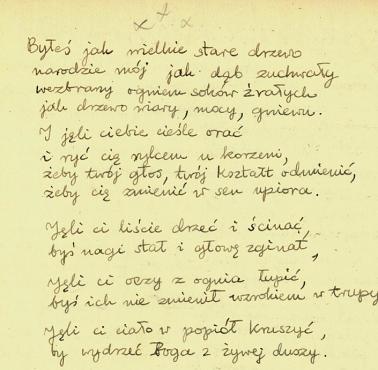 x + x
Byłeś jak wielkie stare drzewo
narodzie mój jak dąb zuchwały
wezbrany ogniem soków źrałych
jak drzewo wiary, mocy, gniewu.
I jęli ciebie cieśle orać
i ryć cię rylcem u korzeni,
żeby twój głos, twój kształt odmienić,
żeby cię zmienić w sen upiora.
Jęli ci liście drzeć i ścinać,
byś nagi stał i głowę zginał,
Jęli ci oczy z ognia łupić,
byś ich nie zmienił wzrokiem w trupy
Jęli ci ciało w popiół kruszyć,
by wydrzeć Boga z żywej duszy.